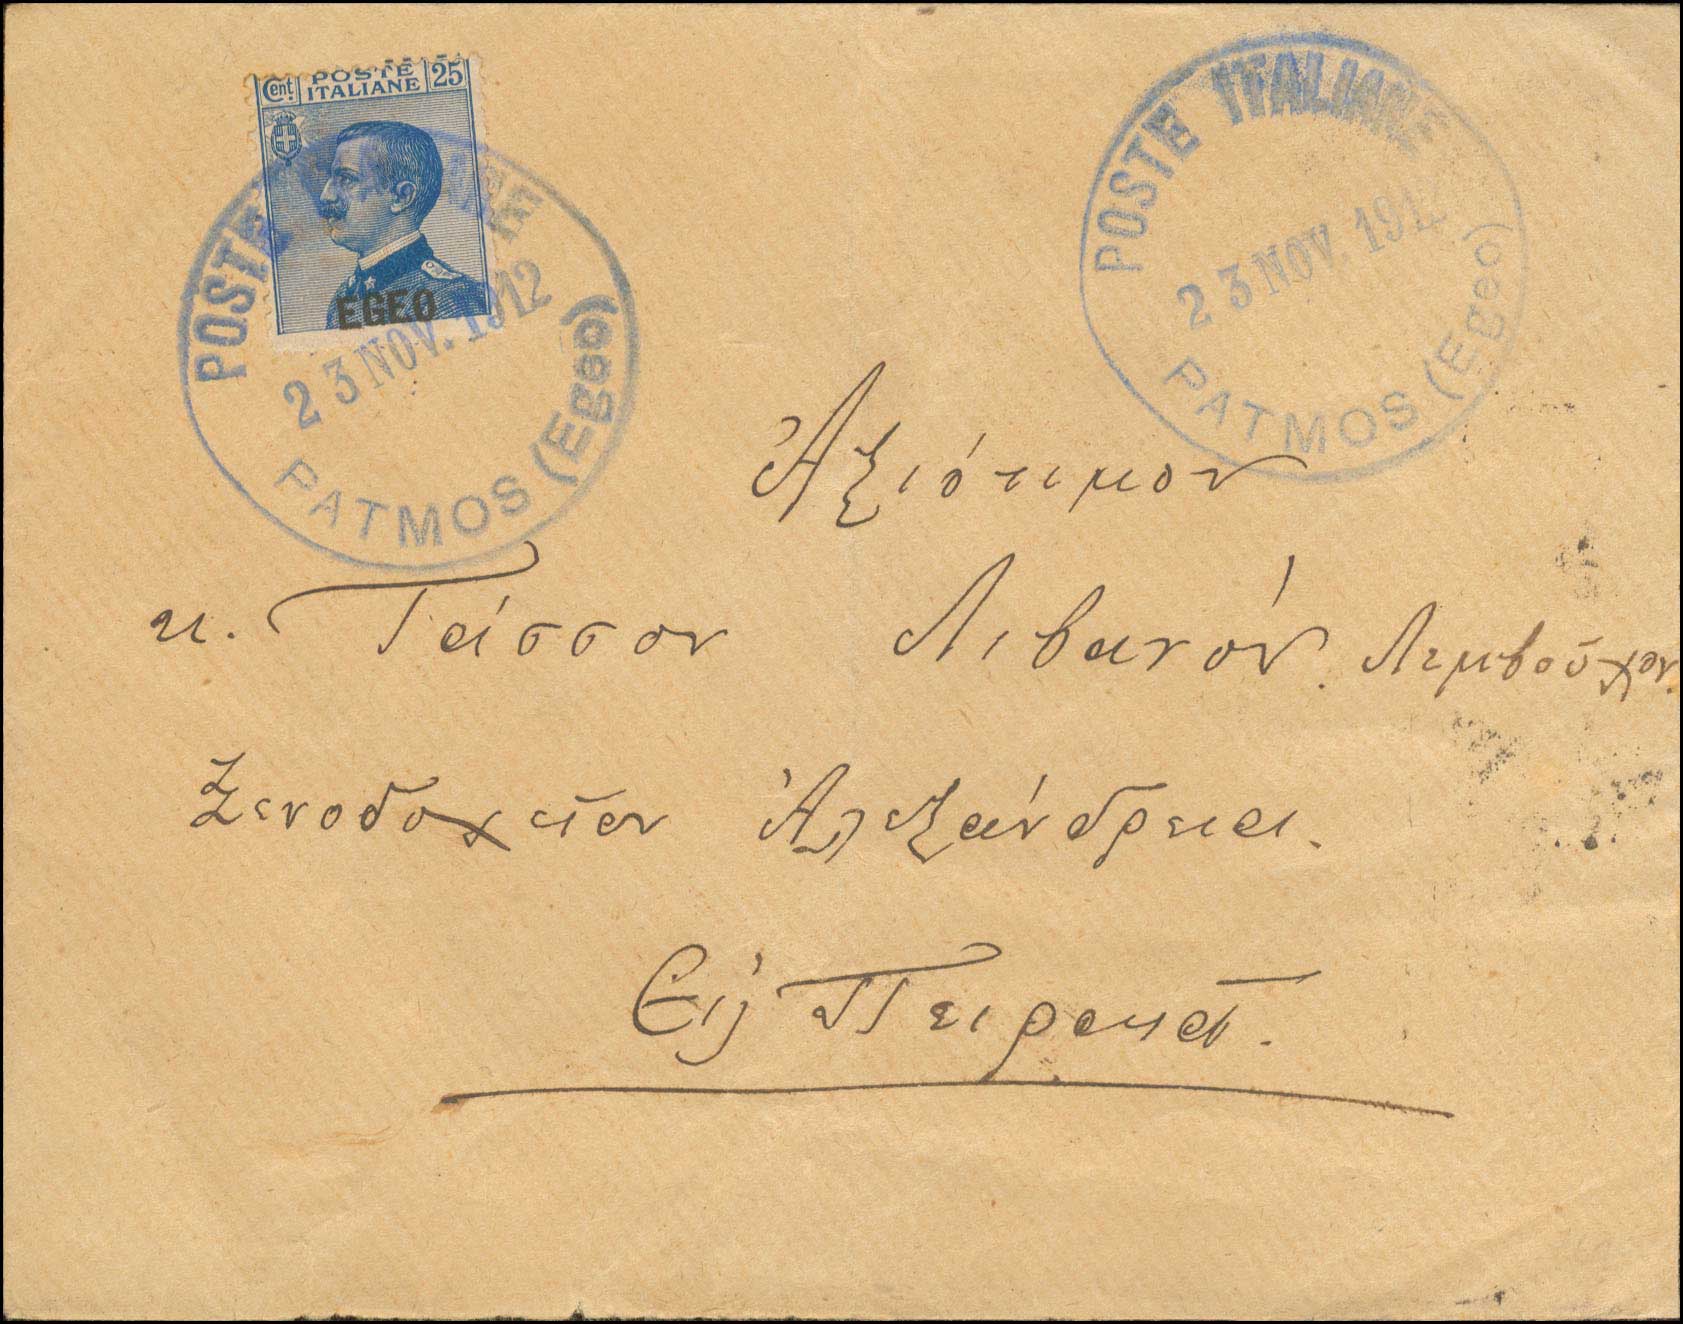 Cent. POSTE ITALIANE 25
EGEO
POSTE ITALIANE
23 NOV. 1912
PATMOS (Egeo)
POSTE ITALIANE
23 NOV. 1912
PATMOS (Egeo)
Ἀξιότιμον
κ. Τάσσον Λιβανόν. Λεμβοῦχον.
Ξενοδοχεῖον Ἀλεξάνδρεια.
Εἰς Πειραιᾶ.